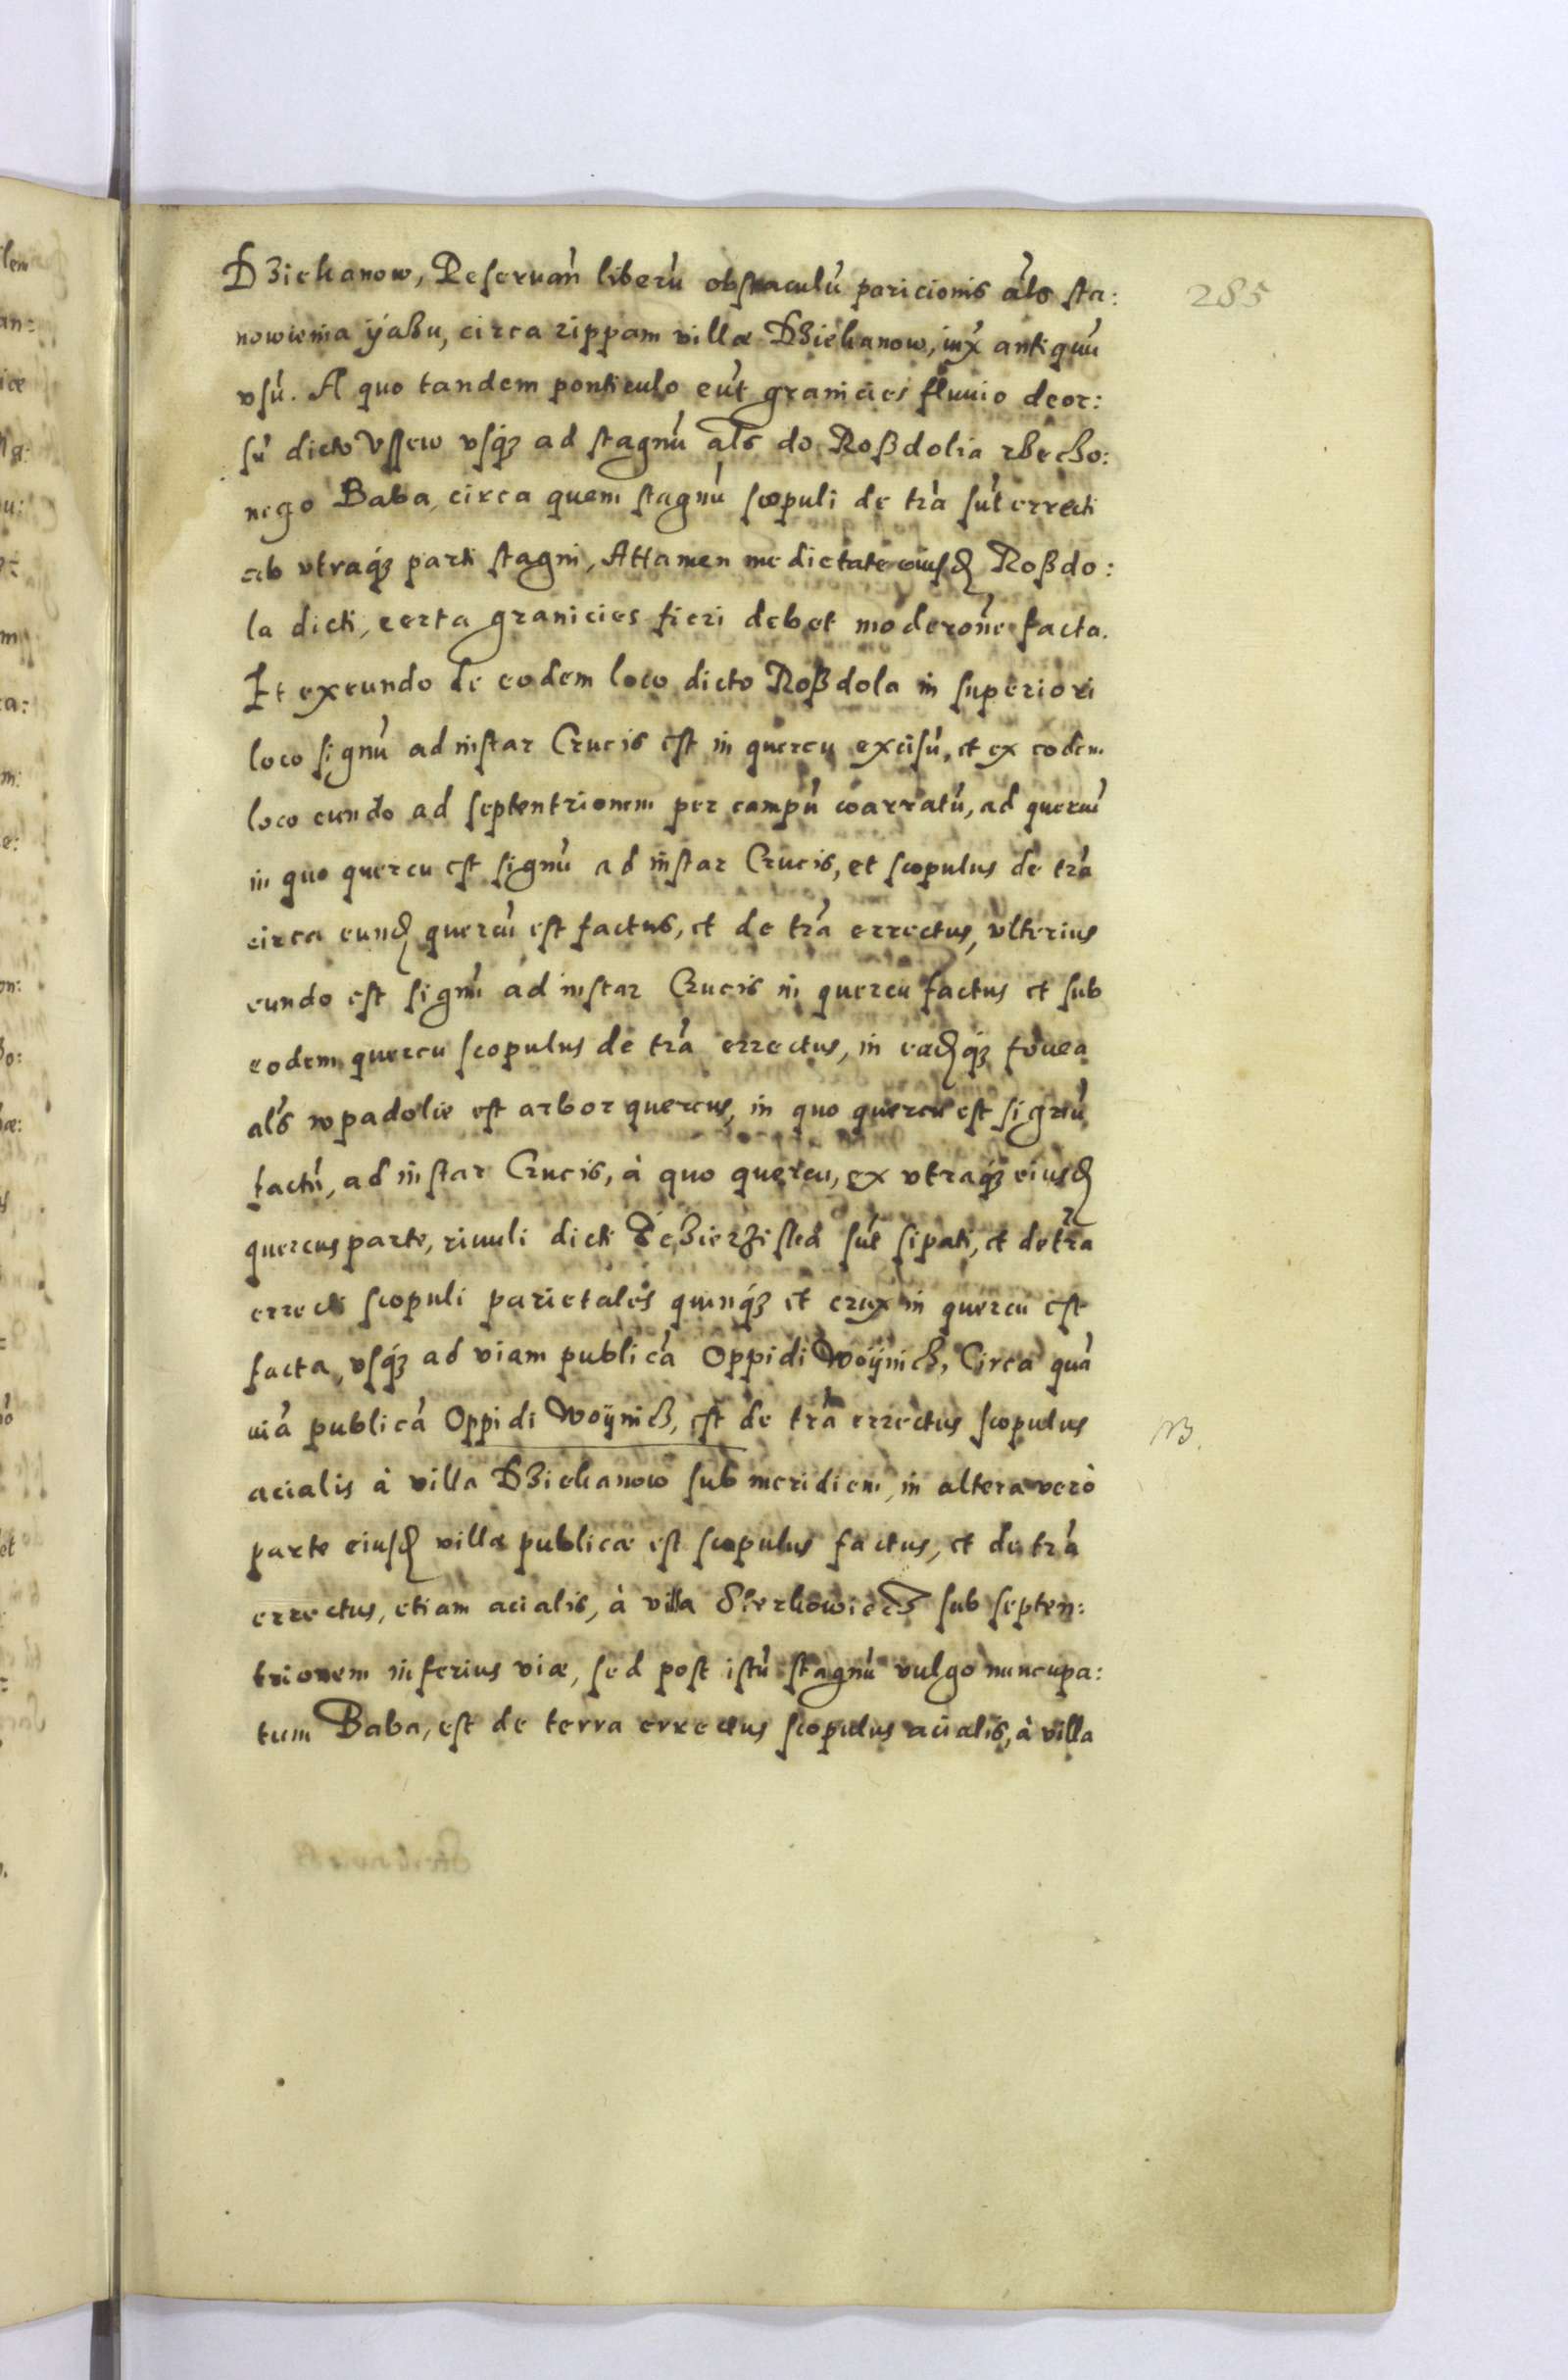 285
Dziekanow, Reseruan̄ liberū obstaculū paricionis als̄ sta:
nowienia yazu, circa rippam villæ Dziekanow, iux̄ antiquū
vsū. A quo tandem ponticulo eūt granicies fluuio deor:
sū dicto Vssew vsq̨ ad stagnū als̄ do Roßdolia rzeczo:
nego Baba, circa quem stagnū scopuli de trā sūt errecti
ab vtraq̨ parti stagni, Attamen medietate eiusd̨ Roßdo:
la dicti, certa granicies fieri debet moderōne facta.
Et exeundo de eodem loco dicto Roßdola in superiori
loco signū ad instar Crucis est in quercu excisū, et ex eodem
loco eundo ad septentrionem per campū coarratū, ad quercū
in quo quercu est signū ad instar Crucis, et scopulus de trā
circa eund̨ quercū est factus, et de trā errectus, vlterius
eundo est signū ad instar Crucis in quercu factus et sub
eodem quercu scopulus de trā errectus, in ead̨q̨ fouea
als̄ wpadolie est arbor quercus, in quo quercu est signū
factū, ad instar Crucis, à quo quercu, ex vtraq̨ eiusd̨
quercus parte, riuuli dicti sūt sipati, et de trā
errecti scopuli parietales quinq̨ et crux in quercu est
facta, vsq̨ ad viam publicā Oppidi Woÿnicz, Circa quā
viā publicā Oppidi Woÿnicz, est de trā errectus scopulus
NB.
acialis à villa Dziekanow sub meridiem, in altera verò
parte eiusd̨ villæ publicæ est scopulus factus, et de trā
errectus, etiam acialis, à villa Sterkowiecz sub septen:
trionem inferius viæ, sed post istū stagnū vulgo nuncupa:
tum Baba, est de terra errectus scopulus acialis, à villa